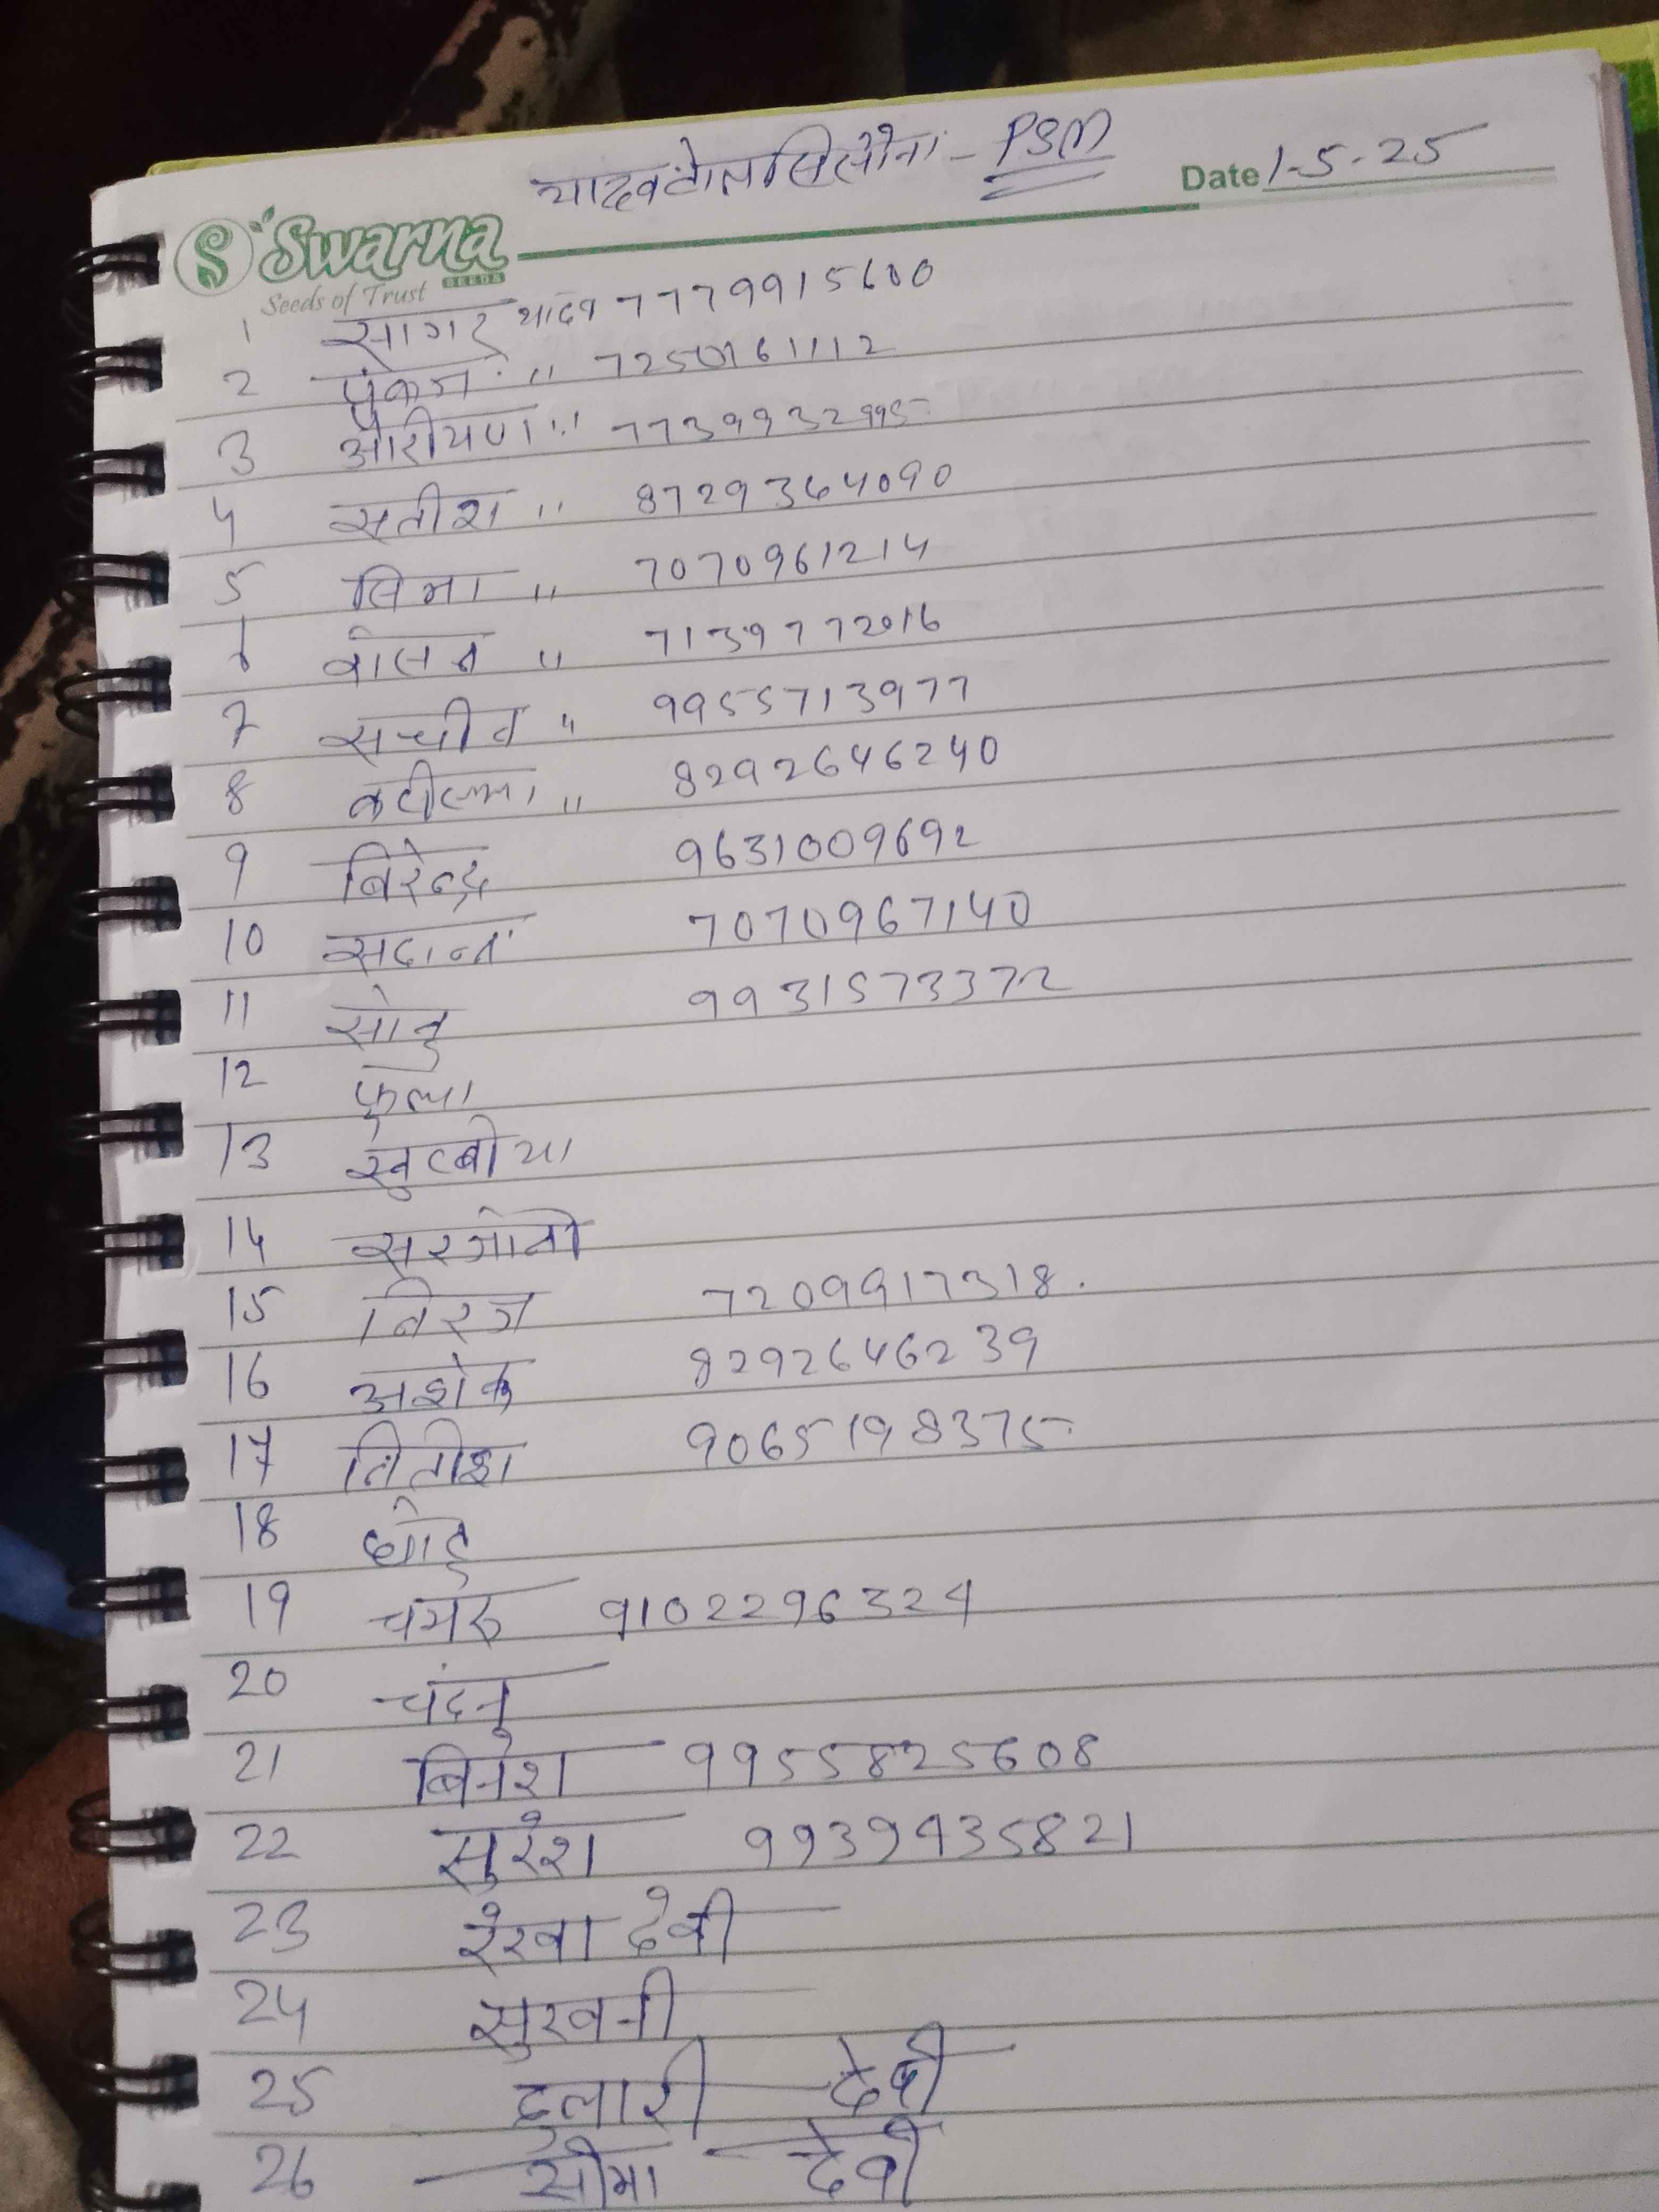 यादवटोल सिलौना - PSM
Date 1-5-25
Swarna
SEEDS
Seeds of Trust
1 सागर यादव 7779915600
2 पंकज " 7250161112
3 आरीयण " 7739932995
4 सतीश " 8729364090
5 विभा " 7070961214
6 " 7139772016
7 सचीन " 9955713977
8 " 8292646240
9 बिरेन्द्र 9631009692
10 सदानन्द 7070967140
11 सोनु 9931573372
12 फुलो
13
14
15 निरज 7209917318.
16 अशोक 8292646239
17 नितीश 9065198375
18 छोटु
19 चमरु 9102296324
20 चंदनु
21 बिनेश 9955825608
22 सुरेश 9939935821
23 रेखा देवी
24 सुखनी
25 दुलारी देवी
26 सीमा देवी